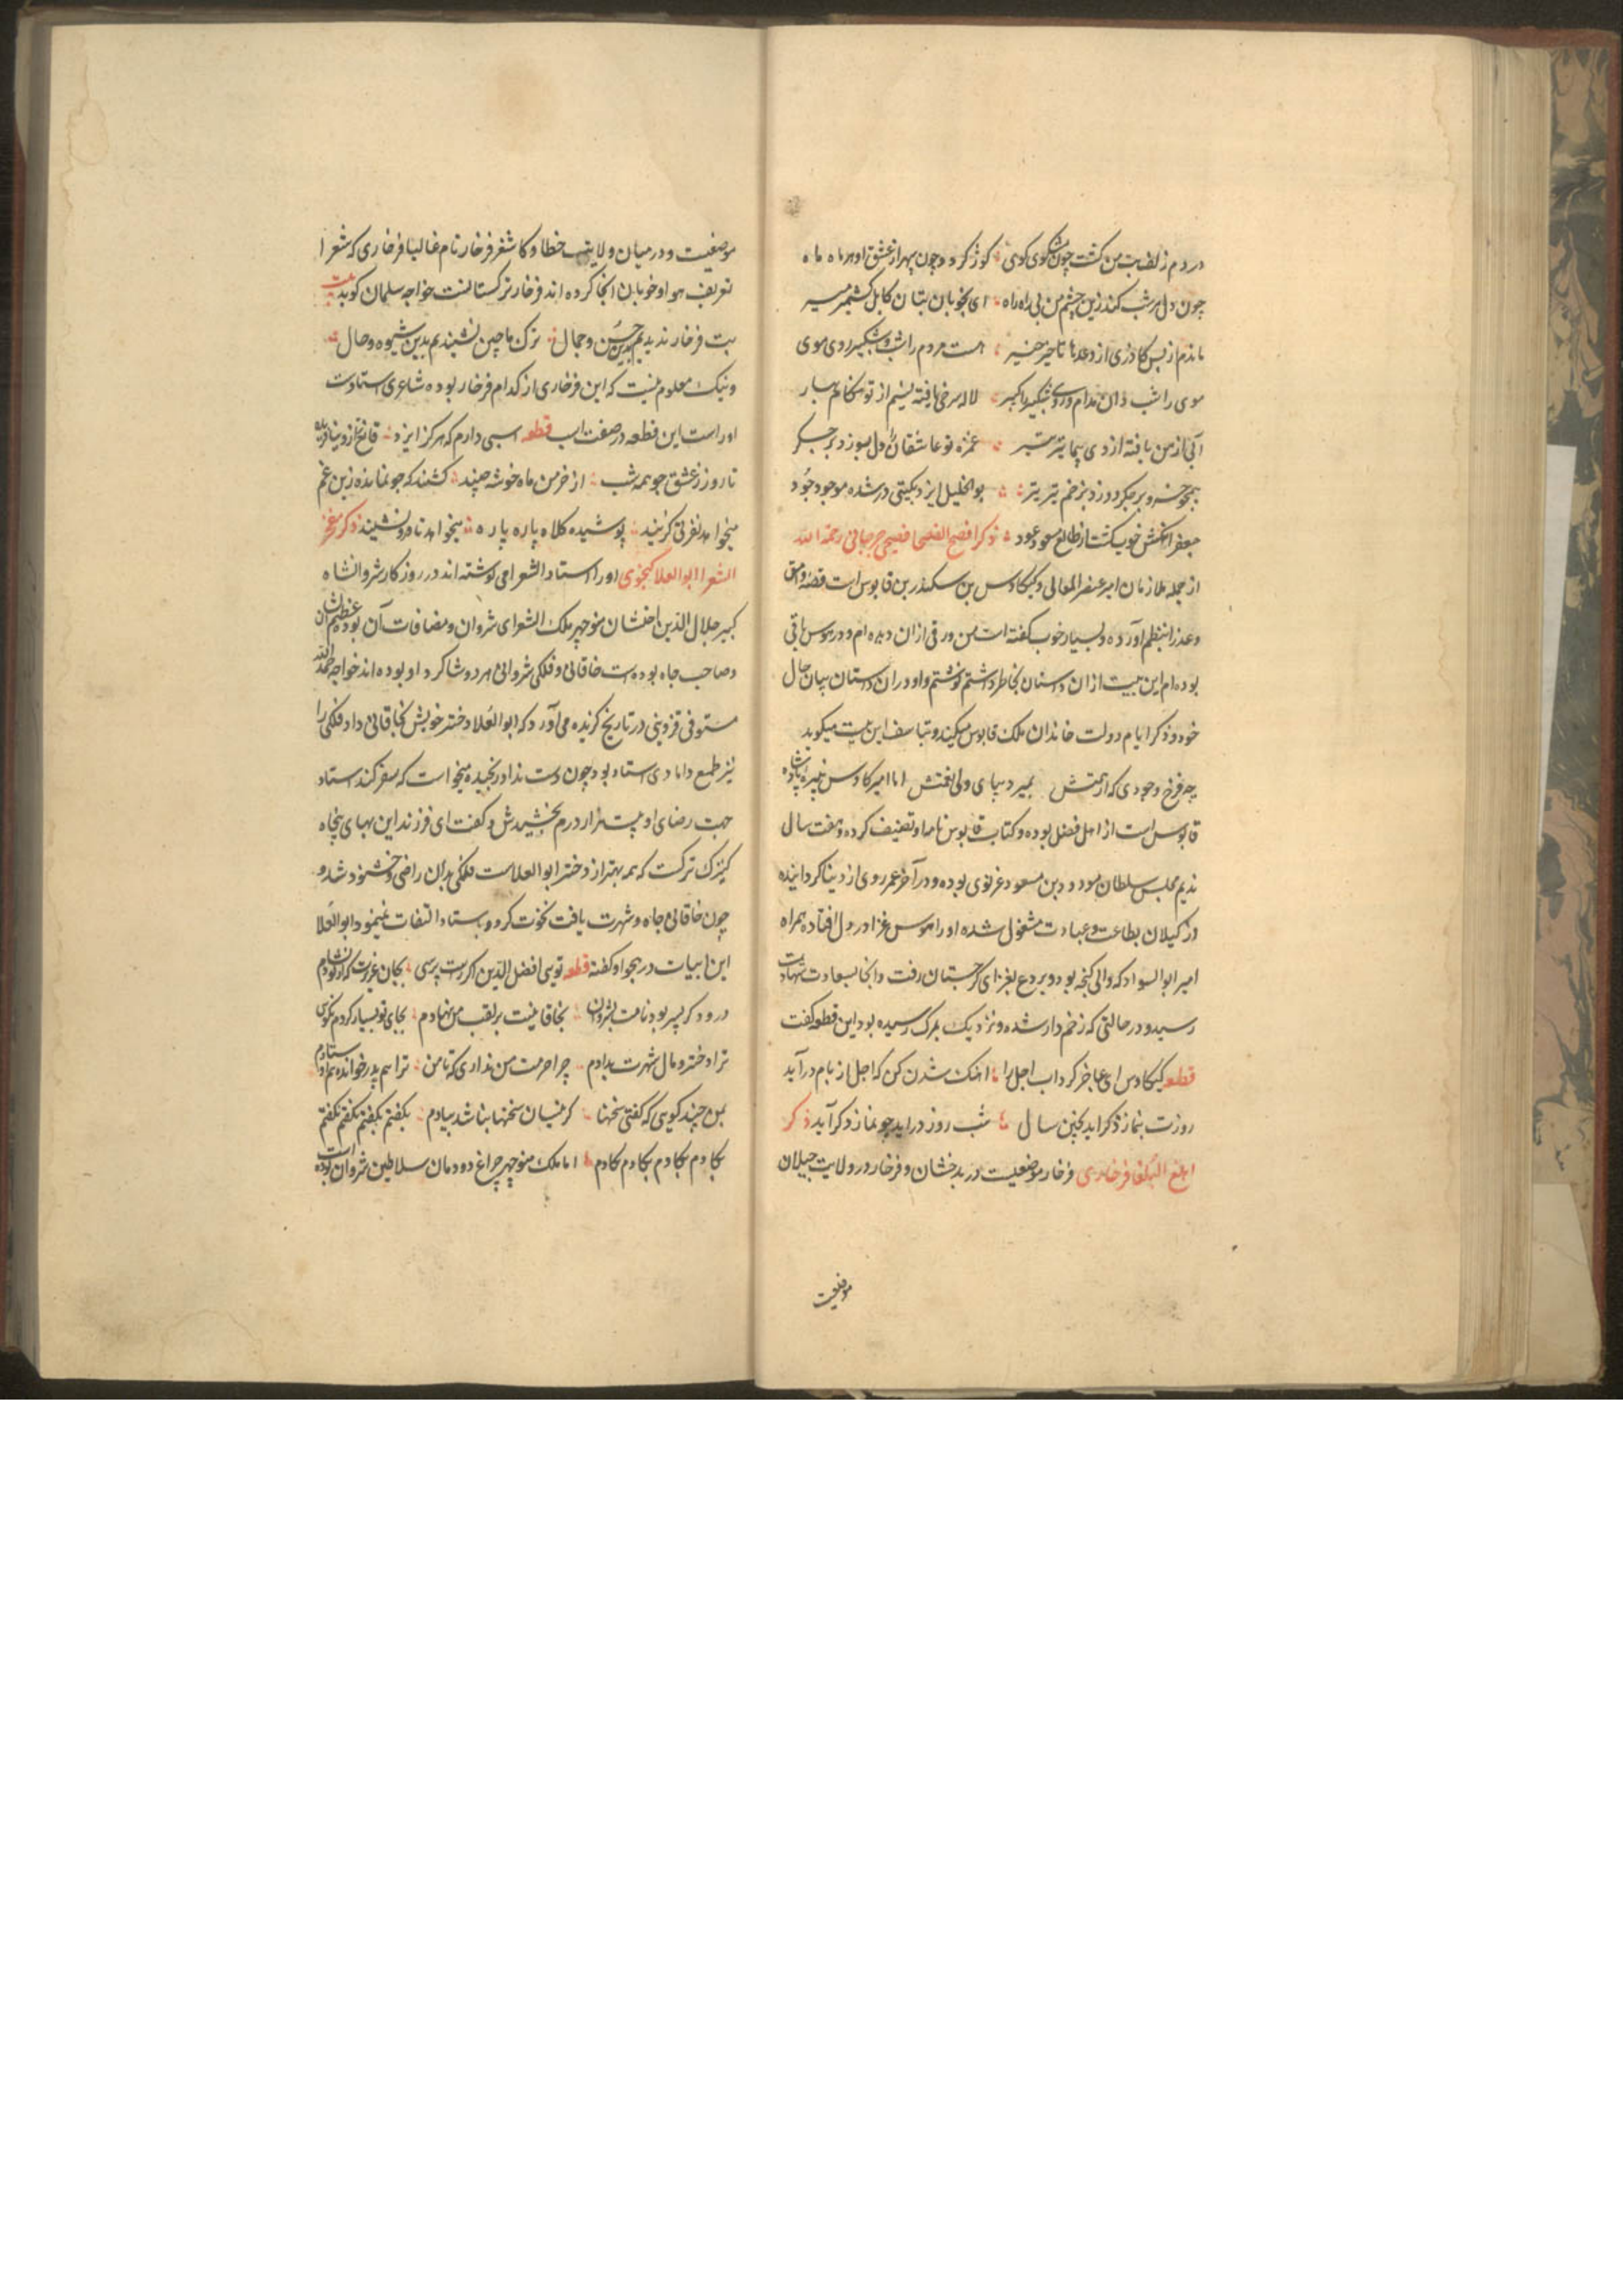 در دم زلف بت من گشت چون مشکوی کوی کوژ کردد چون سپهر از عشق او هر ماه ماه
چون دل هر شب کند زین چشم من بی راه راه ای بخوبان بتان کابل کشمیر میر
ماندم از بس کاوری از وعدها تاخیر خیر هست مردم را شب و شبگیر روی موی
موی را شب دان مدام و روی شبگیر گیر لاله سرخی یافته نسیم از تو هنگام بهار
آنی از من یافته از دی پیما تیر تیر غمزه تو عاشقان دل بسوزد بر جگر
همچو خسرو بر جگر دوزد بزخم تیر تیر بو الخلیل ایزد بگیتی در شده موجود جود
جعفر آنکش خوب گشت از طالع مسعود عود ذکر افصح الفصحا فصیحی جرجانی رحمة الله
از جمله ملازمان امیر عنصر المعالی کیکاوس بن سکندر بن قابوس است قصه وامق
وعذرا بنظم آورده و بسیار خوب گفته است من ورقی از ان دیده ام و در هوس باقی
بوده ام این بیت از ان داستان بخاطر داشتم نوشتم و او در ان داستان بیان حال
خود و ذکر ایام دولت خاندان ملک قابوس میکند و بتاسف این بیت میکوید
چه فرخ وجودی که از همتش بمیرد بپای ولی نعمتش اما امیر کاوس نبیره پادشاه
قابوس است از اهل فضل بوده و کتاب قابوس نامه او تصنیف کرده و هفت سال
ندیم مجلس سلطان مودود بن مسعود غزنوی بوده و در آخر عمر روی از دنیا کردانیده
در کیلان بطاعت و عبادت مشغول شده او را هوس غزا در دل افتاده همراه
امیر ابو السواد که والی کنجه بود و بردع بغزای کرجستان رفت و آنجا بسعادت شهادت
رسید و در حالتی که زخم دار شده و نزدیک بمرک رسیده بود این قطعه گفت
قطعه کیکاوس ای عاجز کرداب اجل را آهنک شدن کن که اجل از بام درآید
روزت بنماز ذکر اید بچنین سال شب روز دراید چو نماز ذکر آید ذکر
ابلغ البلغا فرخاری فرخار موضعیست در بدخشان و فرخار در ولایت جیلان
موضعیست
موضعیست و در میان ولایت خطا و کاشغر فرخار نام غالبا فرخاری که شعرا
تعریف هوا و خوبان انجا کرده اند فرخار ترکستانست خواجه سلمان کوید بیت
بت فرخار ندیدیم بدین حسن و جمال ترک ماچین نشنیدیم بدین شیوه و حال
و نیک معلوم نیست که این فرخاری از کدام فرخار بوده شاعری استادست
اوراست این قطعه در صفت اسب قطعه اسبی دارم که هرکز ایزد قانع تر ازو نیافریده
تا روز ز عشق جو همه شب از خرمن ماه خوشه چیند کفتند که جو نمانده زین غم
میخواهد تعزیتی کزیند پوشیده کلاه پاره پاره میخواهد تا فرو نشیند ذکر مفخر
الشعرا ابو العلا کنجوی او را استاد الشعرا می نوشته اند در روزکار شروانشاه
کبیر جلال الدین اخشان منوجهر ملک الشعرای شروان و مضافات آن بوده عظیم الشان
و صاحب جاه بوده است خاقانی و فلکی شروانی هر دو شاکرد او بوده اند خواجه حمد الله
مستوفی قزوینی در تاریخ کزیده می آورد که ابو العلا دختر خویش بخاقانی داد فلکی را
نیز طمع دامادی استاد بود چون دست نداد رنجیده میخواست که سفر کند استاد
جهت رضای او بیست هزار درم بخشیدش و کفت ای فرزند این بهای پنجاه
کنیزک ترکست که همه بهتر از دختر ابو العلاست فلکی بدان راضی و خشنود شد و
چون خاقانی جاه و شهرت یافت نخوت کرد و باستاد التفات نمینمود ابو العلا
این ابیات در هجو او کفته قطعه تویی افضل الدین اگر راست پرسی بجان عزیزت که از تو نشادم
درودکر پسر بود نامت بشروان بخاقانیت بر لقب من نهادم بجای تو بسیار کردم نکوئی
ترا دختر و مال شهرت بدادم چرا حرمت من نداری که تا من ترا هم پدر خوانده هم اوستادم
بمن چند کوئی که کفتی سخنها کزینسان سخنها نباشد بیادم بکفتم بکفتم بکفتم نکفتم
بکادم بکادم بکادم نکادم اما ملک منوچهر چراغ دودمان سلاطین شروان بوده است